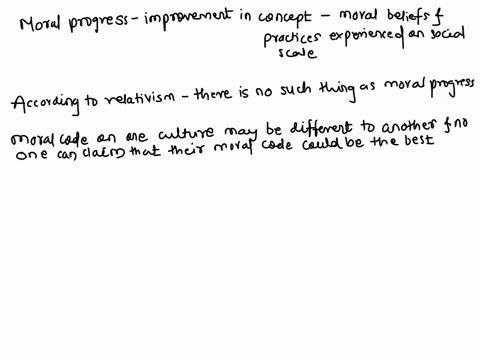 Moral progress - improvement in concept - moral beliefs &
practices experienced on social
scale
According to relativism - there is no such thing as moral progress
moral code on one culture may be different to another & no
one can claim that their moral code could be the best